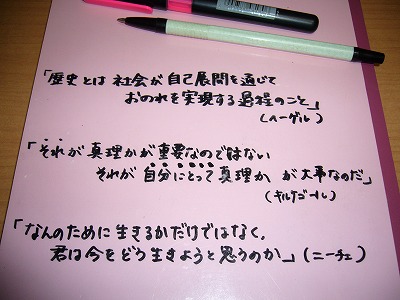 「歴史とは 社会が自己展開を通じて
おのれを実現する過程のこと」
(ヘーゲル)
「それが真理かが重要なのではない
それが自分にとって真理か が大事なのだ」
(キルケゴール)
「なんのために生きるかだけではなく、
君は今をどう生きようと思うのか」(ニーチェ)